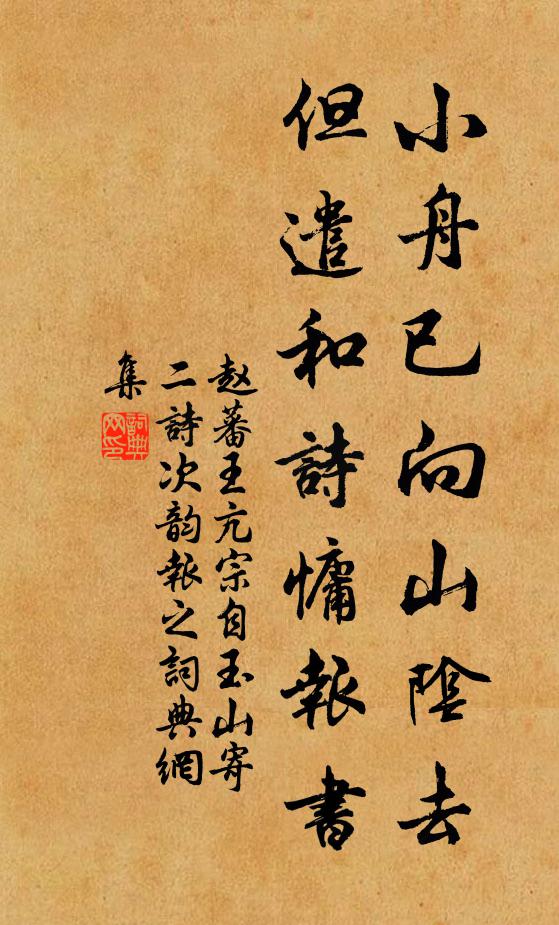 小舟已向山陰去
但遣和詩慵報書
赵蕃王亢宗自玉山寄
二詩次韵報之詞典網
集
詞典
网印